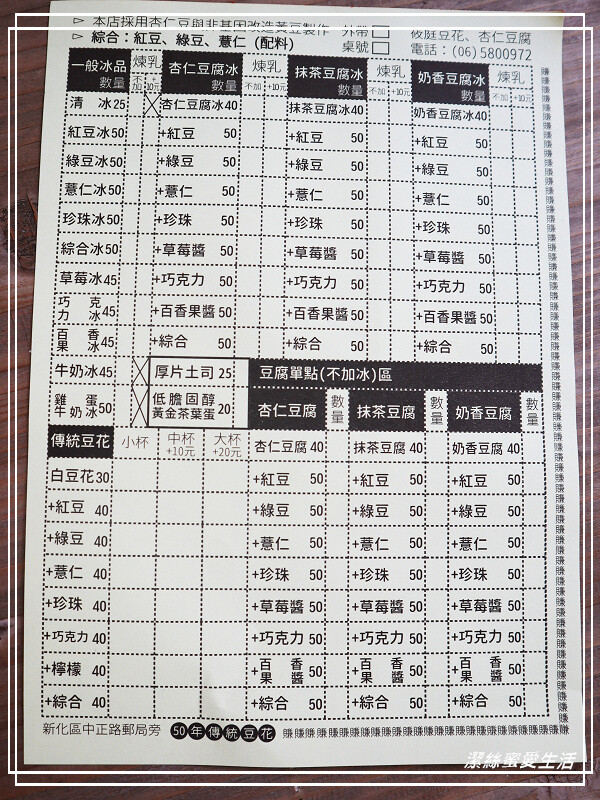 ▷ 本店採用杏仁豆與非基因改造黃豆製作
▷ 綜合：紅豆、綠豆、薏仁 (配料)
外帶
桌號
筱庭豆花、杏仁豆腐
電話：(06) 5800972
一般冰品 數量 煉乳 不加 +10元 杏仁豆腐冰 數量 煉乳 不加 +10元 抹茶豆腐冰 數量 煉乳 不加 +10元 奶香豆腐冰 數量 煉乳 不加 +10元
清冰25 杏仁豆腐冰40 抹茶豆腐冰40 奶香豆腐冰40
紅豆冰50 +紅豆 50 +紅豆 50 +紅豆 50
綠豆冰50 +綠豆 50 +綠豆 50 +綠豆 50
薏仁冰50 +薏仁 50 +薏仁 50 +薏仁 50
珍珠冰50 +珍珠 50 +珍珠 50 +珍珠 50
綜合冰50 +草莓醬 50 +草莓醬 50 +草莓醬 50
草莓冰45 +巧克力 50 +巧克力 50 +巧克力 50
巧克力冰45 +百香果醬50 +百香果醬50 +百香果醬50
百香果冰45 +綜合 50 +綜合 50 +綜合 50
牛奶冰45 厚片土司 25 豆腐單點(不加冰)區
雞蛋牛奶冰50 低膽固醇黃金茶葉蛋 20 杏仁豆腐 數量 抹茶豆腐 數量 奶香豆腐 數量
傳統豆花 小杯 中杯+10元 大杯+20元 杏仁豆腐 40 抹茶豆腐 40 奶香豆腐 40
白豆花30 +紅豆 50 +紅豆 50 +紅豆 50
+紅豆 40 +綠豆 50 +綠豆 50 +綠豆 50
+綠豆 40 +薏仁 50 +薏仁 50 +薏仁 50
+薏仁 40 +珍珠 50 +珍珠 50 +珍珠 50
+珍珠 40 +草莓醬 50 +草莓醬 50 +草莓醬 50
+巧克力 40 +巧克力 50 +巧克力 50 +巧克力 50
+檸檬 40 +百香果醬 50 +百香果醬 50 +百香果醬 50
+綜合 40 +綜合 50 +綜合 50 +綜合 50
新化區中正路郵局旁 50年傳統豆花
潔絲蜜愛生活